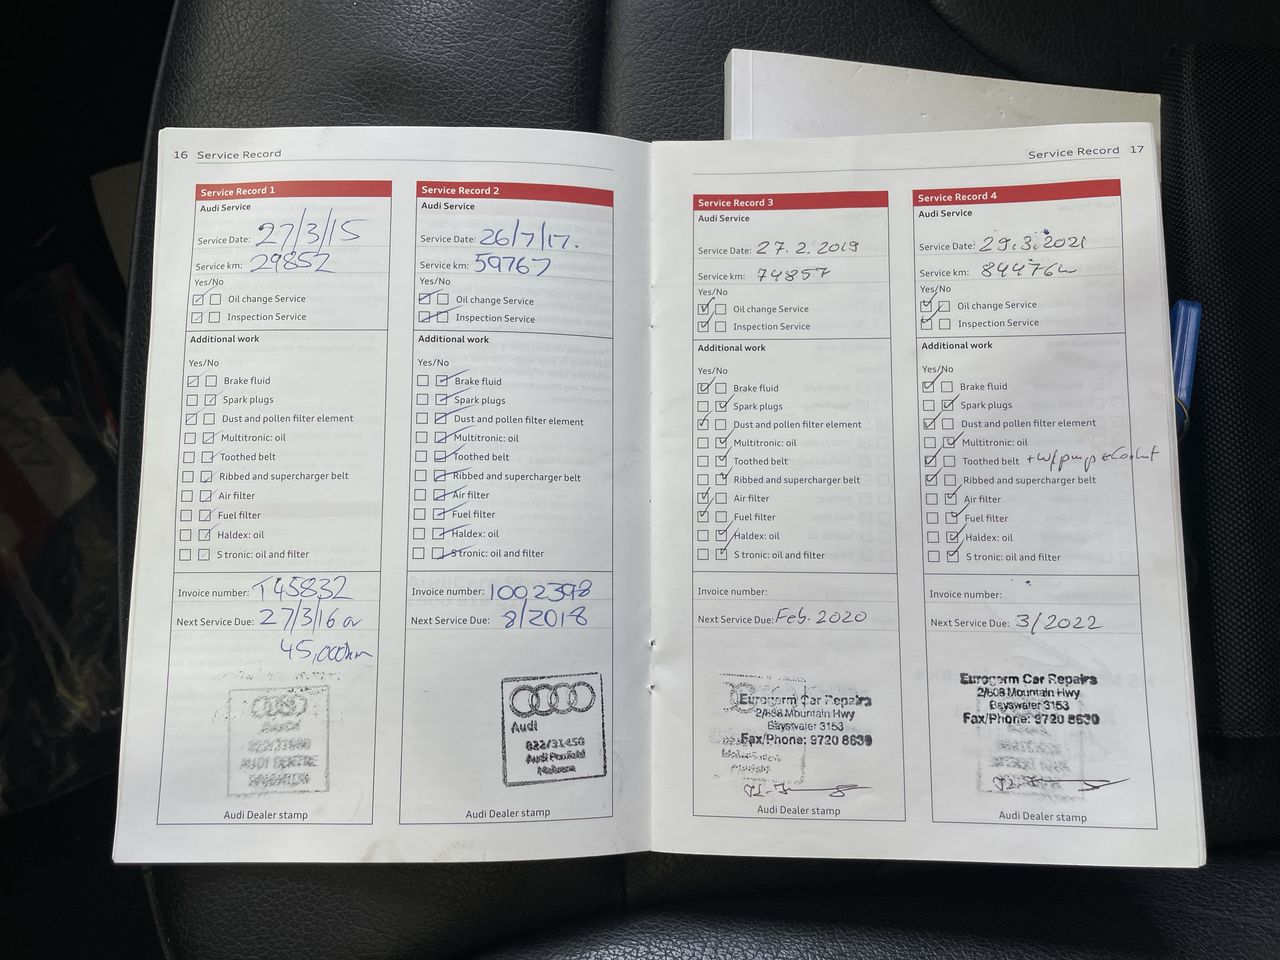 16 Service Record
Service Record 1
Audi Service
Service Date: 27/3/15
Service km: 29852
Yes/No
Oil change Service
Inspection Service
Additional work
Yes/No
Brake fluid
Spark plugs
Dust and pollen filter element
Multitronic: oil
Toothed belt
Ribbed and supercharger belt
Air filter
Fuel filter
Haldex: oil
S tronic: oil and filter
Invoice number: T45832
Next Service Due: 27/3/16 or
45,000km
AUDI CENTRE
Audi Dealer stamp
Service Record 2
Audi Service
Service Date: 26/7/17.
Service km: 59767
Yes/No
Oil change Service
Inspection Service
Additional work
Yes/No
Brake fluid
Spark plugs
Dust and pollen filter element
Multitronic: oil
Toothed belt
Ribbed and supercharger belt
Air filter
Fuel filter
Haldex: oil
S tronic: oil and filter
Invoice number: 1002398
Next Service Due: 8/2018
Audi
022/31450
Audi
Audi Dealer stamp
Service Record 17
Service Record 3
Audi Service
Service Date: 27.2.2019
Service km: 74857
Yes/No
Oil change Service
Inspection Service
Additional work
Yes/No
Brake fluid
Spark plugs
Dust and pollen filter element
Multitronic: oil
Toothed belt
Ribbed and supercharger belt
Air filter
Fuel filter
Haldex: oil
S tronic: oil and filter
Invoice number:
Next Service Due: Feb. 2020
Eurogerm Car Repairs
2/608 Mountain Hwy
Bayswater 3153
Fax/Phone: 9720 8639
Audi Dealer stamp
Service Record 4
Audi Service
Service Date: 29.3.2021
Service km: 84476
Yes/No
Oil change Service
Inspection Service
Additional work
Yes/No
Brake fluid
Spark plugs
Dust and pollen filter element
Multitronic: oil
Toothed belt + w/pump + Coolant
Ribbed and supercharger belt
Air filter
Fuel filter
Haldex: oil
S tronic: oil and filter
Invoice number:
Next Service Due: 3/2022
Eurogerm Car Repairs
2/608 Mountain Hwy
Bayswater 3153
Fax/Phone: 9720 8639
Audi Dealer stamp